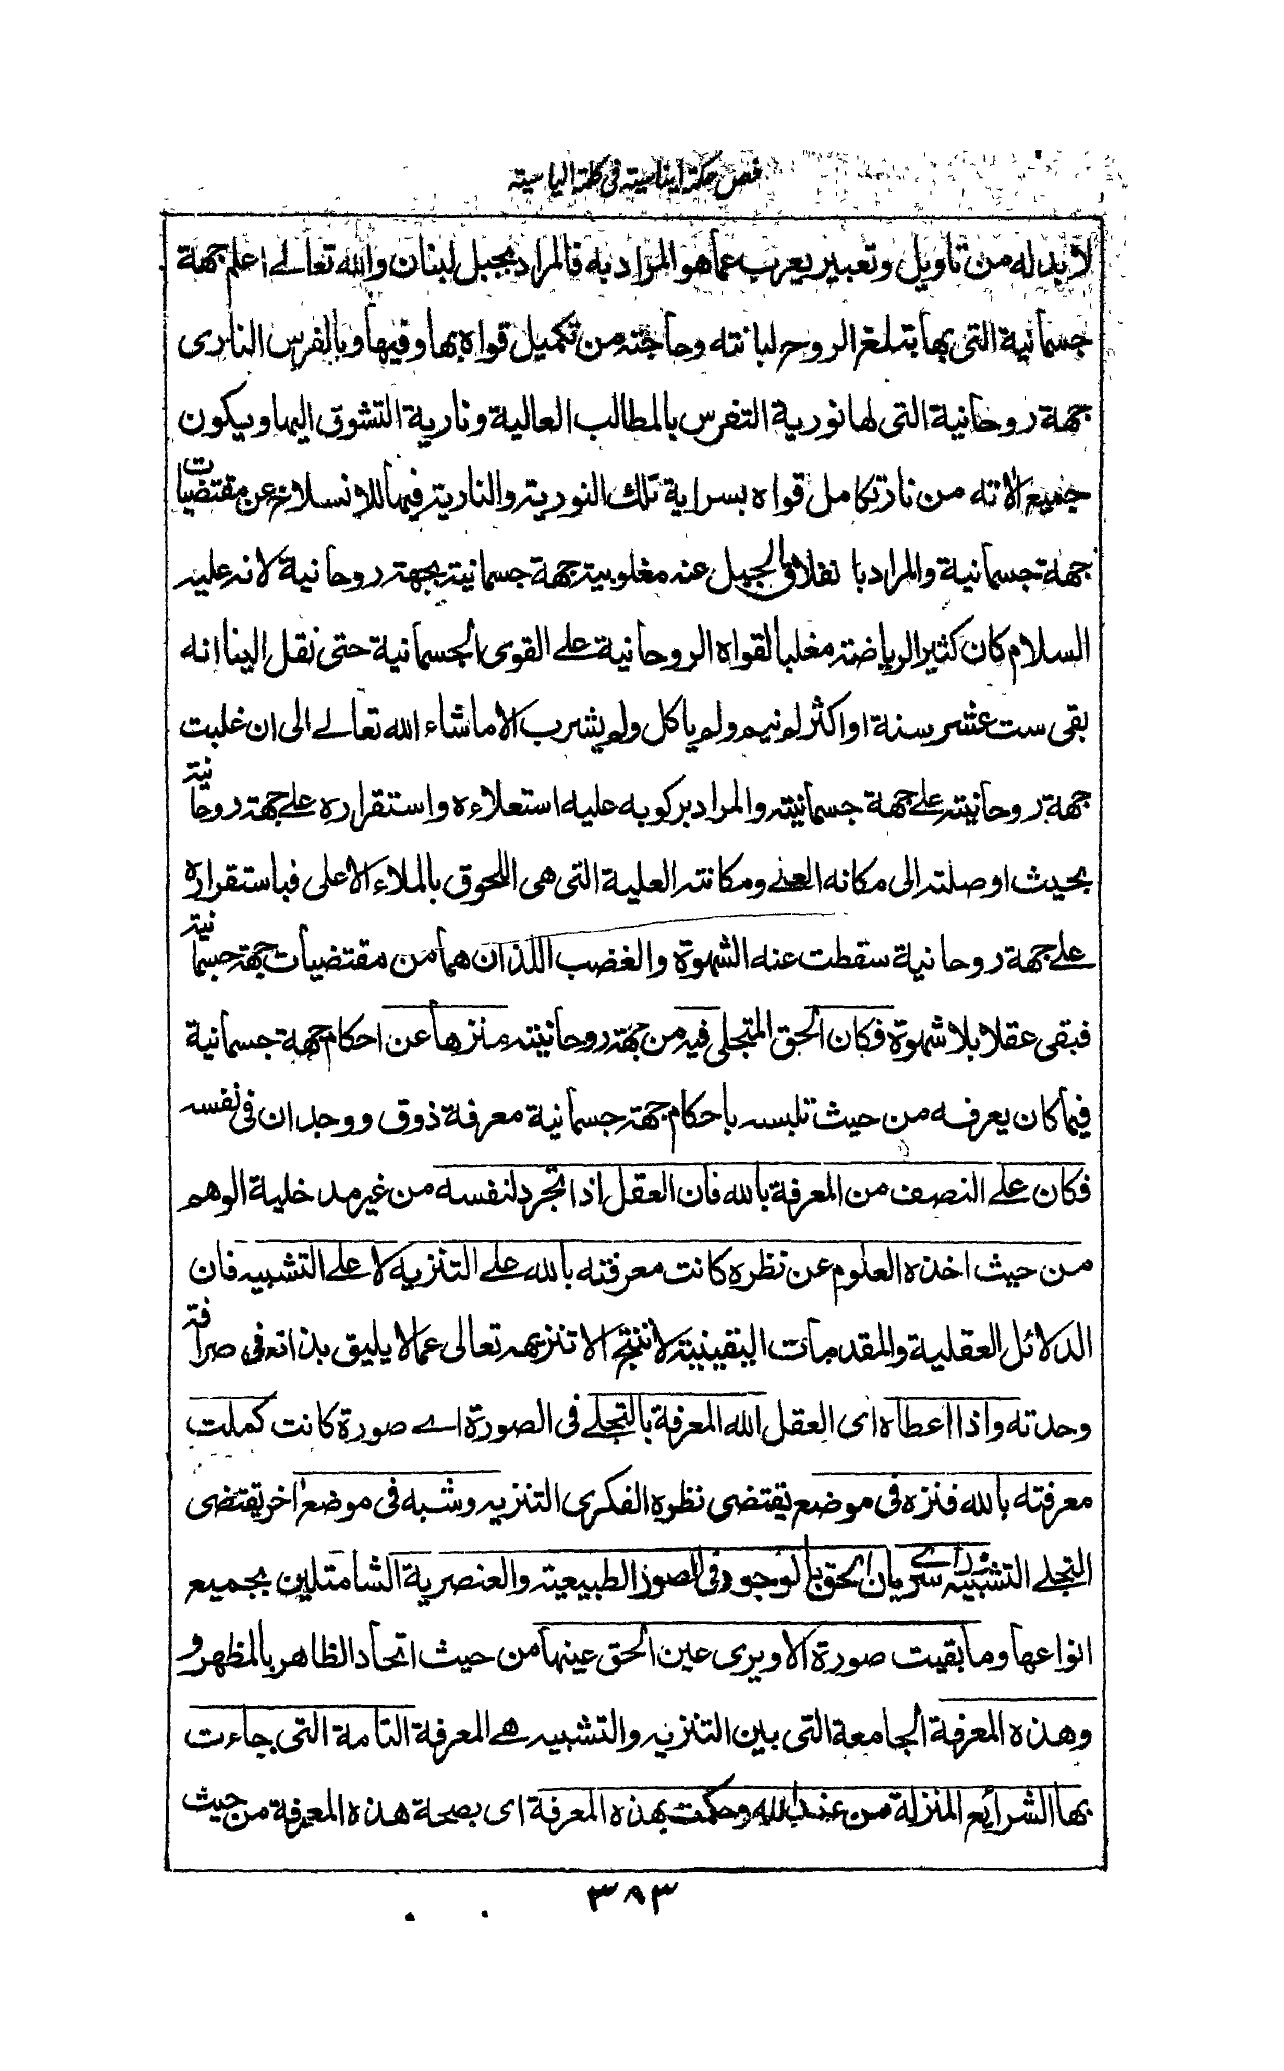 فص حكمة ايناسية فى كلمة الياسية
لا بد له من تاويل وتعبير يعرب عما هو المراد به فالمراد بجبل لبنان والله تعالے اعلم جهة
جسمانية التى بها يتبلغ الروح لبانته وحاجته من تكميل قواه بها وفيها وبالفرس النارى
جهة روحانية التى لها نورية التفرس بالمطالب العالية ونارية التشوق اليها ويكون
جميع الاته من نار تكامل قواه بسراية تلك النورية والنارية فيها للانسلاخ عن مقتضيات
جهة جسمانية والمراد با نفلاق الجبل عنه مغلوبية جهة جسمانية بجهة روحانية لانه عليه
السلام كان كثير الرياضة مغلبا لقواه الروحانية علے القوى الجسمانية حتى نقل الينا انه
بقى ست عشر سنة او اكثر لم نيم ولم ياكل ولم يشرب الا ما شاء الله تعالے الى ان غلبت
جهة روحانيته علے جهة جسمانيته والمراد بركوبه عليه استعلاءه واستقراره علے جهة روحانية
بحيث اوصلته الى مكانه العلى ومكانته العلية التى هى اللحوق بالملاء الاعلى فباستقراره
علے جهة روحانية سقطت عنه الشهوة والغضب اللذان هما من مقتضيات جهة جسمانية
فبقى عقلا بلا شهوة فكان الحق المتجلى فيه من جهة روحانيته منزها عن احكام جهة جسمانية
فيما كان يعرفه من حيث تلبسه باحكام جهة جسمانية معرفة ذوق ووجدان فى نفسه
فكان علے النصف من المعرفة بالله فان العقل اذا تجرد لنفسه من غير مدخلية الوهم
من حيث اخذه العلوم عن نظره كانت معرفته بالله علے التنزيه لا علے التشبيه فان
الدلائل العقلية والمقدمات اليقينية لا تنتج الا تنزيهه تعالى عما لا يليق بذاته فى صرافة
وحدته واذا اعطاه اى العقل الله المعرفة بالتجلے فى الصورة اے صورة كانت كملت
معرفته بالله فنزه فى موضع يقتضى نظره الفكرى التنزيه وشبه فى موضع اخر يقتضى
التجلے التشبيه وراے سريان الحق بالوجود فى الصور الطبيعية والعنصرية الشاملتين بجميع
انواعها وما بقيت صورة الا ويرى عين الحق عينها من حيث اتحاد الظاهر بالمظهر و
وهذه المعرفة الجامعة التى بين التنزيه والتشبيه هے المعرفة التامة التى جاءت
بها الشرائع المنزلة من عند الله وحكمت بهذه المعرفة اى بصحة هذه المعرفة من حيث
٣٨٣